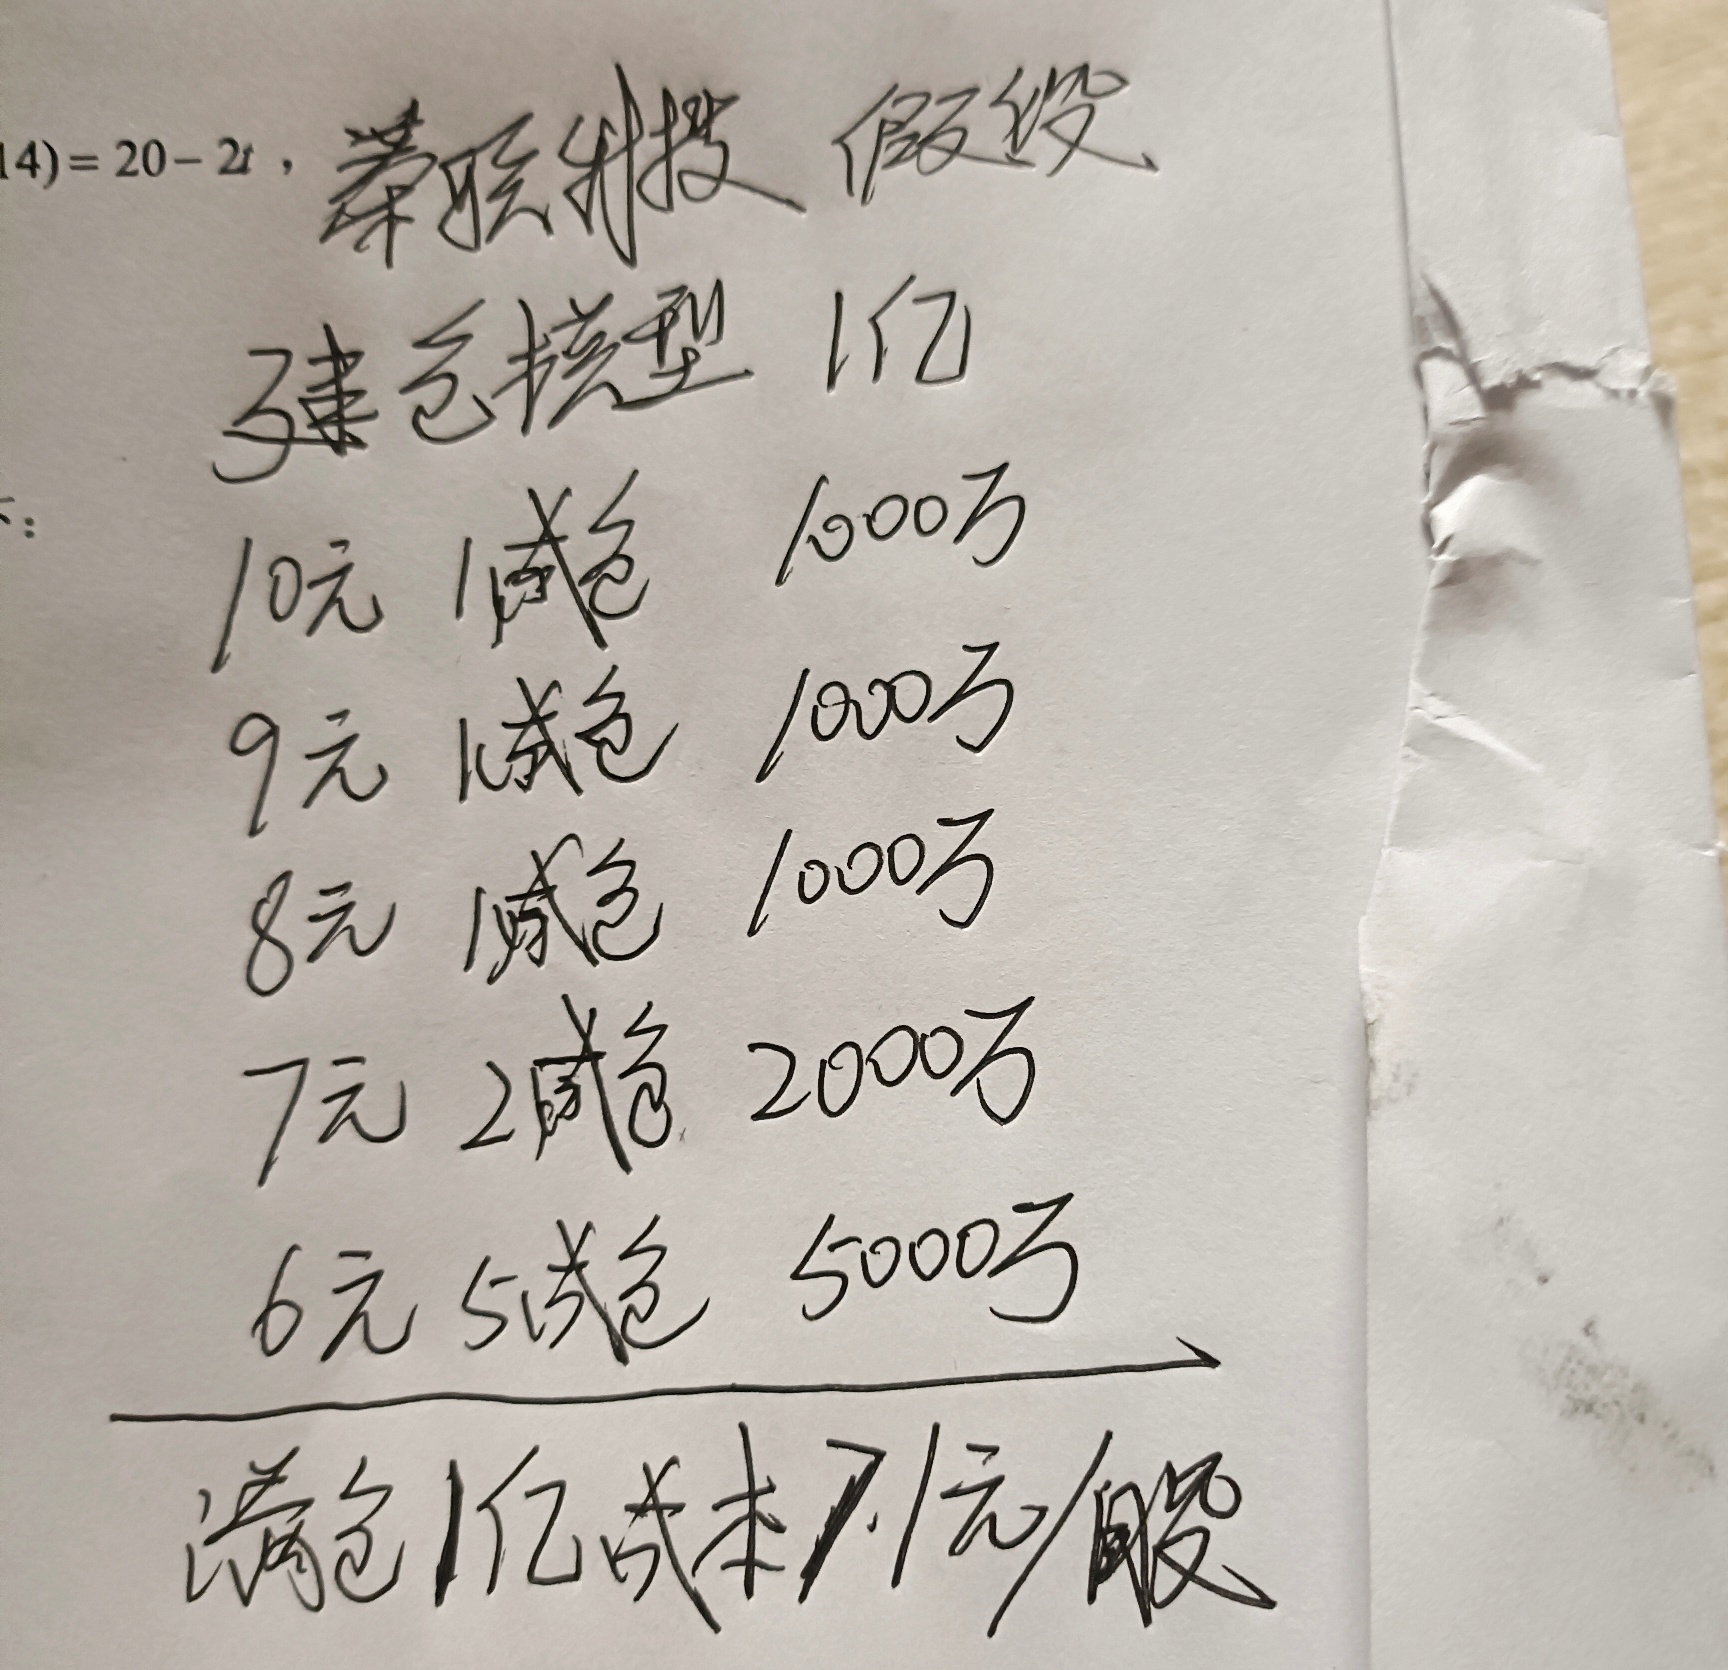 14) = 20 − 2t， 荣联科技 假设
建仓模型 1亿
：
10元 1成仓 1000万
9元 1成仓 1000万
8元 1成仓 1000万
7元 2成仓 2000万
6元 5成仓 5000万
满仓1亿成本7.1元/股